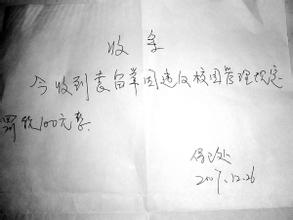 收条
今收到袁留革因违反校园管理规定
罚款100元整.
保卫处
2007.12.26